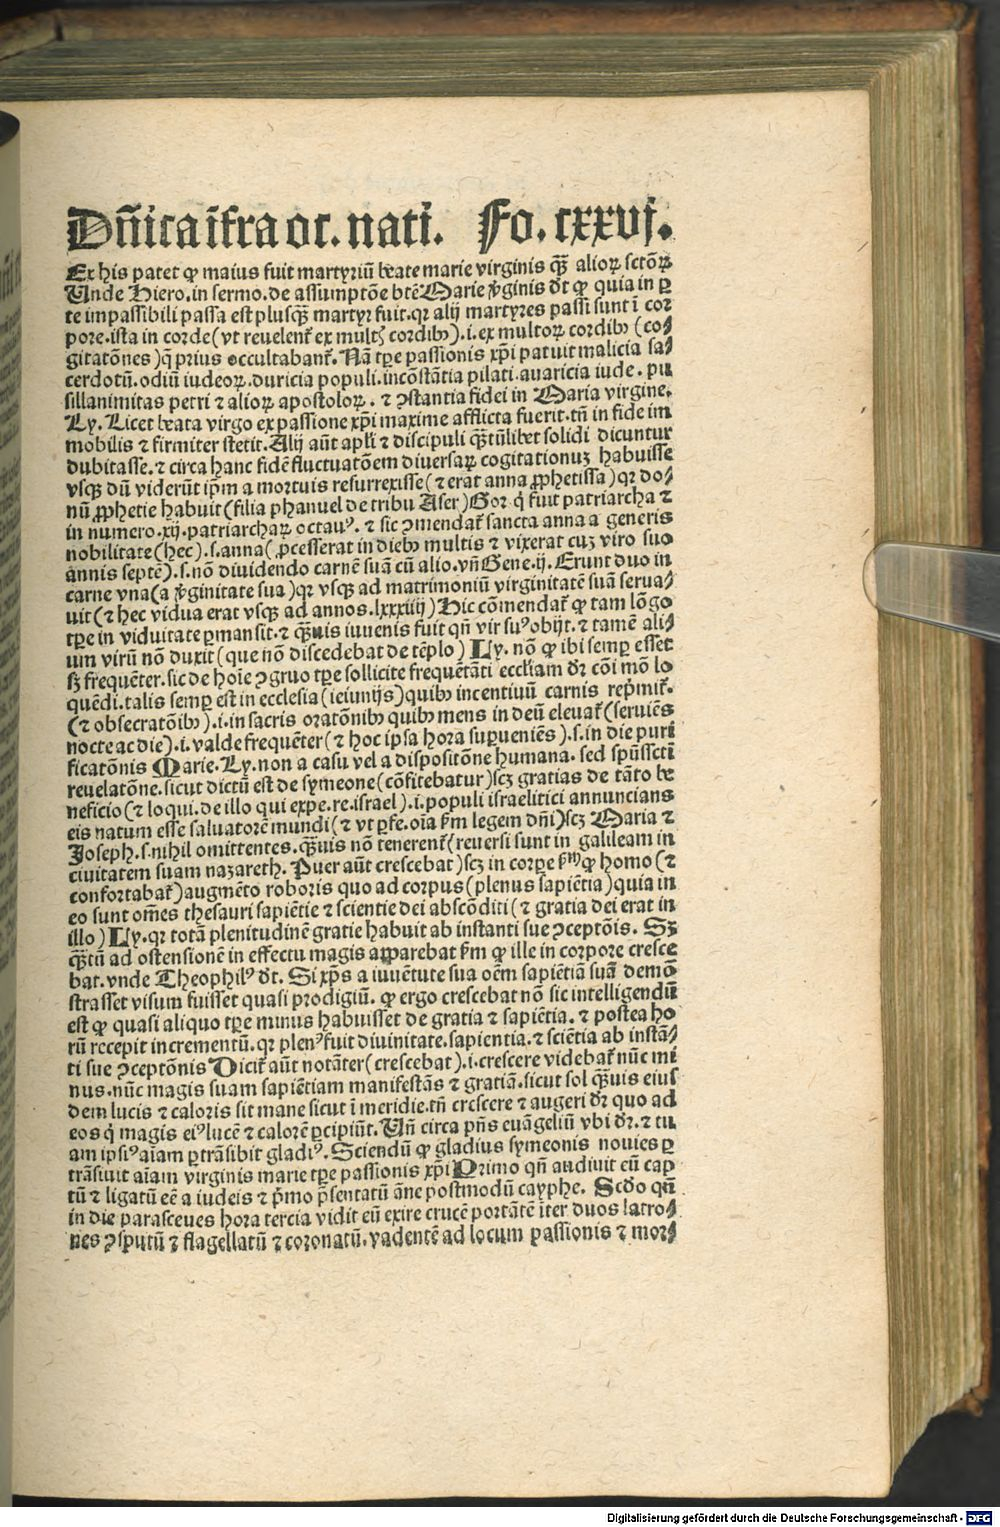 Dñica ĩfra oc. nati. Fo. cxxvj.
Ex his patet ꝙ maius fuit martyriũ beate marie virginis q̃ꝫ alioꝝ sctõꝝ
Unde Hiero. in sermo. de assumptõe btẽ Marie ṽginis dt̃ ꝙ quia in ꝑ
te impassibili passa est plusq̃ꝫ martyr fuit. qr alij martyres passi sunt ĩ cor
pore. ista in corde (vt reuelent̃ ex multꝭ cordibꝫ) .i. ex multoꝝ cordibꝫ (co⸗
gitatões) q̃ prius occultabant̃. Nã tꝑe passionis xp̃i patuit malicia sa⸗
cerdotũ. odiũ iudeoꝝ. duricia populi. incõstãtia pilati. auaricia iude. pu
sillanimitas petri ⁊ alioꝝ apostoloꝝ. ⁊ ꝯstantia fidei in Maria virgine.
Ly. Licet beata virgo ex passione xp̃i maxime afflicta fuerit. tñ in fide im
mobilis ⁊ firmiter stetit. Alij aũt apl̃i ⁊ discipuli q̃ꝫtũlibet solidi dicuntur
dubitasse. ⁊ circa hanc fidẽ fluctuatõem diuersaꝝ cogitationuꝫ habuisse
vsqꝫ dũ viderũt ip̃m a mortuis resurrexisse (⁊ erat anna ꝓphetissa) qr do⸗
nũ ꝓphetie habuit (filia phanuel de tribu Aser) Gor q̃ fuit patriarcha ⁊
in numero .xij. patriarchaꝝ octauꝰ. ⁊ sic ꝯmendat̃ sancta anna a generis
nobilitate (hec) .s. anna (ꝓcesserat in diebꝫ multis ⁊ vixerat cuꝫ viro suo
annis septẽ) .s. nõ diuidendo carnẽ suã cũ alio. vñ Gene. ij. Erunt duo in
carne vna (a ṽginitate sua) qr vsqꝫ ad matrimoniũ virginitatẽ suã serua⸗
uit (⁊ hec vidua erat vsqꝫ ad annos .lxxxiiij) Hic cõmendat̃ ꝙ tam lõgo
tꝑe in viduitate ꝑmansit. ⁊ q̃ꝫuis iuuenis fuit qñ vir suꝰ obijt. ⁊ tamẽ ali⸗
um virũ nõ duxit (que nõ discedebat de tẽplo) Ly. nõ ꝙ ibi semꝑ esset
sꝫ frequẽter. sic de hoĩe ꝯgruo tꝑe sollicite frequẽtãti eccl̃iam dr̃ cõi mõ lo
quẽdi. talis semꝑ est in ecclesia (ieiunijs) quibꝫ incentiuũ carnis rep̃mit̃.
(⁊ obsecratõibꝫ) .i. in sacris oratõnibꝫ quibꝫ mens in deũ eleuat̃ (seruiẽs
nocte ac die) .i. valde frequẽter (⁊ hoc ipsa hora suꝑueniẽs) .s. in die puri
ficatõnis Marie. Ly. non a casu vel a dispositõne humana. sed spũssctĩ
reuelatõne. sicut dictũ est de symeone (cõfitebatur) scꝫ gratias de tãto be
neficio (⁊ loqui. de illo qui expe. re. israel) .i. populi israelitici annuncians
eis natum esse saluatorẽ mundi (⁊ vt ꝑfe. oĩa ẜm legem dñi) scꝫ Maria ⁊
Joseph .s. nihil omittentes. q̃ꝫuis nõ tenerent̃ (reuersi sunt in galileam in
ciuitatem suam nazareth. Puer aũt crescebat) scꝫ in corꝑe ẜm ꝙ homo (⁊
confortabat̃) augmẽto roboris quo ad corpus (plenus sapiẽtia) quia in
eo sunt om̃es thesauri sapiẽtie ⁊ scientie dei abscõditi (⁊ gratia dei erat in
illo) Ly. qr totã plenitudinẽ gratie habuit ab instanti sue ꝯceptõis. Sꝫ
q̃ꝫtũ ad ostensionẽ in effectu magis apparebat ẜm ꝙ ille in corpore cresce
bat. vnde Theophilꝰ dt̃. Si xp̃s a iuuẽtute sua oẽm sapiẽtiã suã demõ
strasset visum fuisset quasi prodigiũ. ꝙ ergo crescebat nõ sic intelligendũ
est ꝙ quasi aliquo tꝑe minus habuisset de gratia ⁊ sapiẽtia. ⁊ postea ho
rũ recepit incrementũ. qr plenꝰ fuit diuinitate. sapientia. ⁊ sciẽtia ab instã⸗
ti sue ꝯceptõnis Dicit̃ aũt notãter (crescebat) .i. crescere videbat̃ nũc mi
nus. nũc magis suam sapiẽtiam manifestãs ⁊ gratiã. sicut sol q̃ꝫuis eius
dem lucis ⁊ caloris sit mane sicut ĩ meridie. tñ crescere ⁊ augeri dr̃ quo ad
eos q̃ magis eiꝰ lucẽ ⁊ calorẽ ꝑcipiũt. Uñ circa pñs euãgeliũ vbi dr̃. ⁊ tu
am ipsiꝰ aĩam ꝑtrãsibit gladiꝰ. Sciendũ ꝙ gladius symeonis nouies ꝑ
trãsiuit aĩam virginis marie tꝑe passionis xp̃i Primo qñ audiuit eũ cap
tũ ⁊ ligatũ eẽ a iudeis ⁊ p̃mo p̃sentatũ ãne postmodũ cayphe. Scd̃o qñ
in die parasceues hora tercia vidit eũ exire crucẽ portãtẽ ĩter duos latro⸗
nes ꝯsputũ ⁊ flagellatũ ⁊ coronatũ. vadentẽ ad locum passionis ⁊ mor⸗
Digitalisierung gefördert durch die Deutsche Forschungsgemeinschaft - DFG